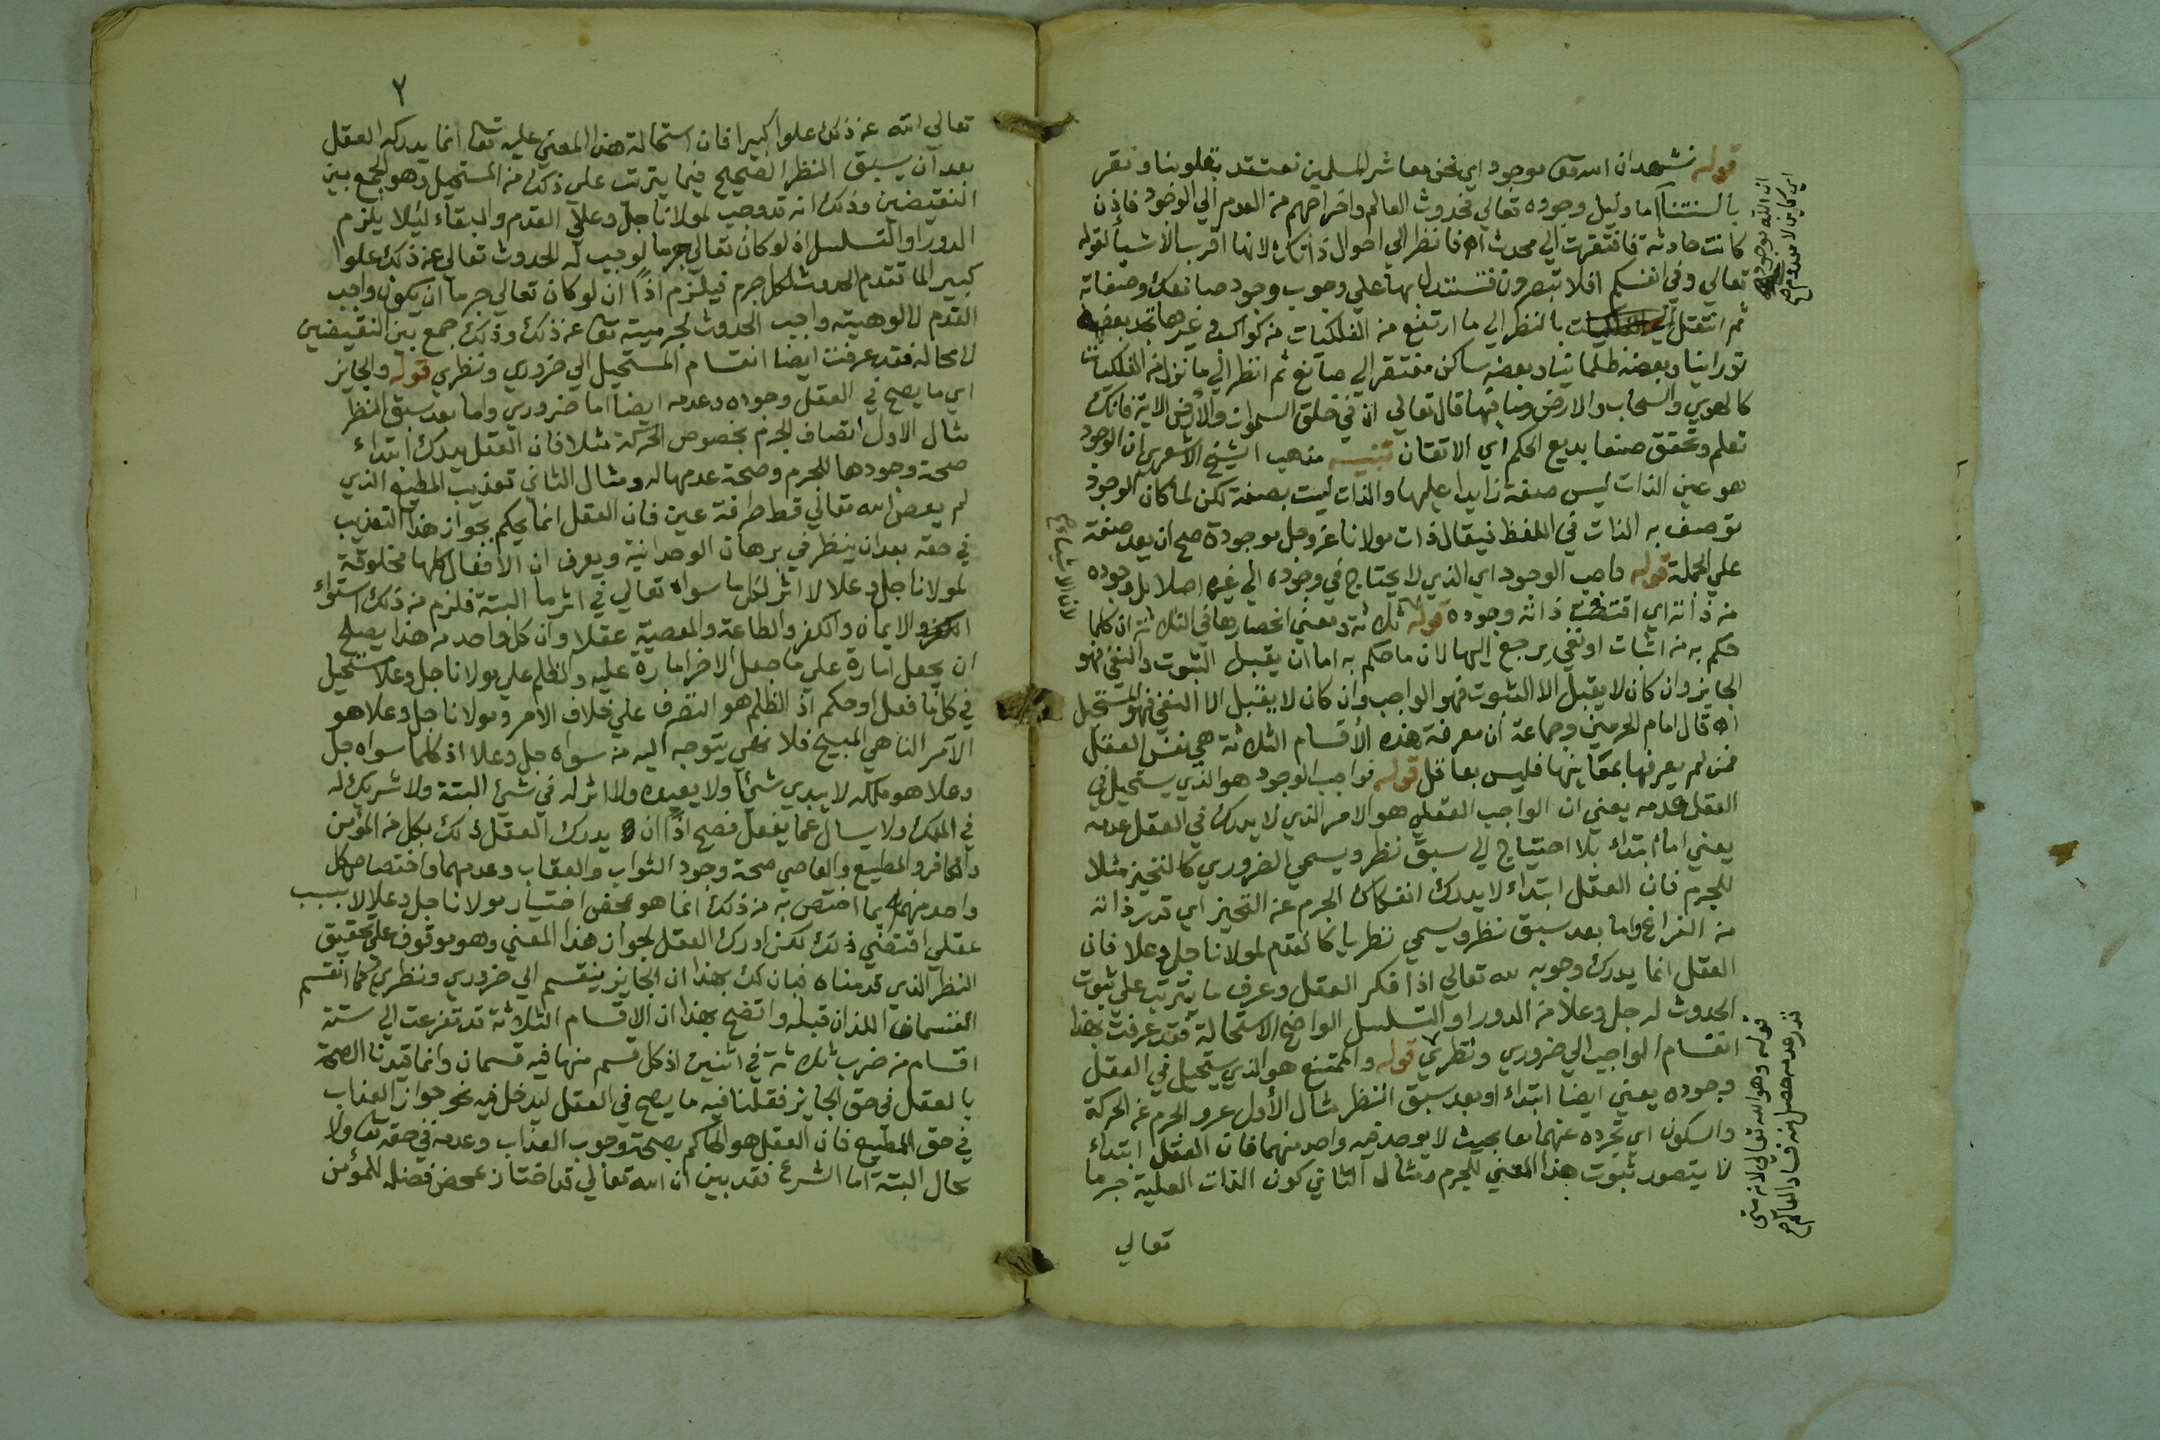 قوله نشهد ان الله تعالى موجود اي نحن معاشر المسلمين نعتقد بقلوبنا ونقر
بالسنتنا اما دليل وجوده تعالي فحدوث العالم واخراجهم من العدم الي الوجود فاذن
كانت حادثة فافتقرت الي محدث اه فانظر الي احوال ذاتك لانها اقرب الاشيا لقوله
تعالي وفي انفسكم افلا تبصرون فتستدل بها علي وجوب وجود صانعك وصفاته
ثم انتقل بالنظر الي ما ارتفع من الفلكيات من كواكب وغيرها تجد بعضه
نورانيا وبعضه ظلمانيا وبعضه ساكن مفتقر الي صانع ثم انظر الي ما نزل من الفلكيات
كالهوي والسحاب والارض وما فيها قال تعالي ان في خلق السموات والارض الاية فانك
تعلم وتحقق صنعا بديع الحكم اي الاتقان تنبيه مذهب الشيخ الاشعري ان الوجود
هو عين الذات ليس صفة زايدا عليها والذات ليست بصفة لكن لما كان الوجود
توصف به الذات في اللفظ فيقال ذات مولانا عز وجل موجودة صح ان يعد صفة
علي الجملة قوله واجب الوجود اي الذي لا يحتاج في وجوده الي غيره اصلا بل وجوده
من ذاته اي اقتضت ذاته وجوده قوله ثلاثة ومعني انحصارها في الثلاثة ان كلما
حكم به من اثبات او نفي يرجع اليها لان ما حكم به اما ان يقبل الثبوت والنفي فهو
الجايز وان كان لا يقبل الا الثبوت فهو الواجب وان كان لا يقبل الا النفي فهو المستحيل
اه قال امام الحرمين وجماعة ان معرفة هذه الأقسام الثلاثة هي نفس العقل
فمن لم يعرفها بمعاينها فليس بعاقل قوله فواجب الوجود هو الذي يستحيل في
العقل عدمه يعني ان الواجب العقلي هو الامر الذي لا يدرك في العقل عدمه
يعني اما ابتداء بلا احتياج الي سبق نظر ويسمي الضروري كالتحيز مثلا
للجرم فان العقل ابتداء لا يدرك انفكاك الجرم عن التحيز اي قدر ذاته
من الفراغ واما بعد سبق نظر ويسمي نظريا كالقدم لمولانا جل وعلا فان
العقل انما يدرك وجوبه لله تعالي اذا فكر العقل وعرف ما يترتب علي ثبوت
الحدوث له جل وعلا من الدور او التسلسل الواضح الاستحالة فقد عرفت بهذا
انقسام الواجب الي ضروري ونظري قوله والممتنع هو الذي يستحيل في العقل
وجوده يعني ايضا ابتداء او بعد سبق النظر مثال الأول عرو الجرم عن الحركة
والسكون اي تجرده عنهما معا بحيث لا يوجد فيه واحد منهما فان العقل ابتداء
لا يتصور ثبوت هذا المعني للجرم ومثال الثاني كون الذات العلية جرما
تعالي
ان الله موجود
اي كاين لا معدوم
قوله وهو الله تعالي لانه متى
قدر عدمه حصل منه فساد العالم
٢
تعالي الله عن ذلك علوا كبيرا فان استحالة هذا المعني عليه تعا انما يدركه العقل
بعد ان يسبق النظر الصحيح فيما يترتب علي ذلك من المستحيل وهو الجمع بين
النقيضين وذلك انه قد وجب لمولانا جل وعلا القدم والبقاء ليلا يلزم
الدور او التسلسل اذ لو كان تعالي جرما لوجب له الحدوث تعالي عن ذلك علوا
كبيرا لما تقدم الحدوث لكل جرم فيلزم اذا ان لو كان تعالي جرما ان يكون واجب
القدم لالوهيته واجب الحدوث لجرميته تعا عن ذلك وذلك جمع بين النقيضين
لا محالة فقد عرفت ايضا انقسام المستحيل الي ضروري ونظري قوله والجايز
اي ما يصح في العقل وجوده وعدمه ايضا اما ضروري واما بعد سبق النظر
مثال الاول اتصاف الجرم بخصوص الحركة مثلا فان العقل يدرك ابتداء
صحة وجودها للجرم وصحة عدمها له ومثال الثاني تعذيب المطيع الذي
لم يعص الله تعالي قط طرفة عين فان العقل انما يحكم بجواز هذا التعذيب
في حقه بعد ان ينظر في برهان الوحدانية ويعرف ان الافعال كلها مخلوقة
لمولانا جل وعلا لا اثر لكل ما سواه تعالي في اثر ما البتة فلزم من ذلك استواء
الكفر والايمان والكفر والطاعة والمعصية عقلا وان كل واحد من هذا يصلح
ان يجعل امارة علي ما جعل الاخر امارة عليه والظلم علي مولانا جل وعلا مستحيل
في كل ما فعل او حكم اذ الظلم هو التصرف علي خلاف الامر ومولانا جل وعلا هو
الآمر الناهي المبيح فلا نهي يتوجه اليه من سواه جل وعلا اذ كلما سواه جل
وعلا هو ملكه لا يبدي شيئا ولا يعيده ولا اثر له في شيء البتة ولا شريك له
في الملك ولا يسال عما يفعل فصح اذا ان يدرك العقل ذلك بكل من المؤمن
والكافر والمطيع والعاصي صحة وجود الثواب والعقاب وعدمهما واختصاص كل
واحد منهما بما اختص به من ذلك انما هو بمحض اختيار مولانا جل وعلا لا بسبب
عقلي اقتضي ذلك لكن ادرك العقل لجواز هذا المعني وهو موقوف علي تحقيق
النظر الذي قدمناه فبان لك بهذا ان الجايز ينقسم الي ضروري ونظري كما انقسم
القسمان اللذان قبله واتضح بهذا ان الاقسام الثلاثة قد تفرعت الي ستة
اقسام من ضرب ثلاثة في اثنين اذ كل قسم منها فيه قسمان وانما قيدنا الصحة
بالعقل في حق الجايز فقلنا فيه ما يصح في العقل ليدخل فيه نحو جواز العذاب
في حق المطيع فان العقل هو الحاكم بصحة وجوب العذاب وعدمه في حقه تعا ولا
محال البتة اما الشرع فقد بين ان الله تعالي قد اختار بمحض فضله للمؤمن